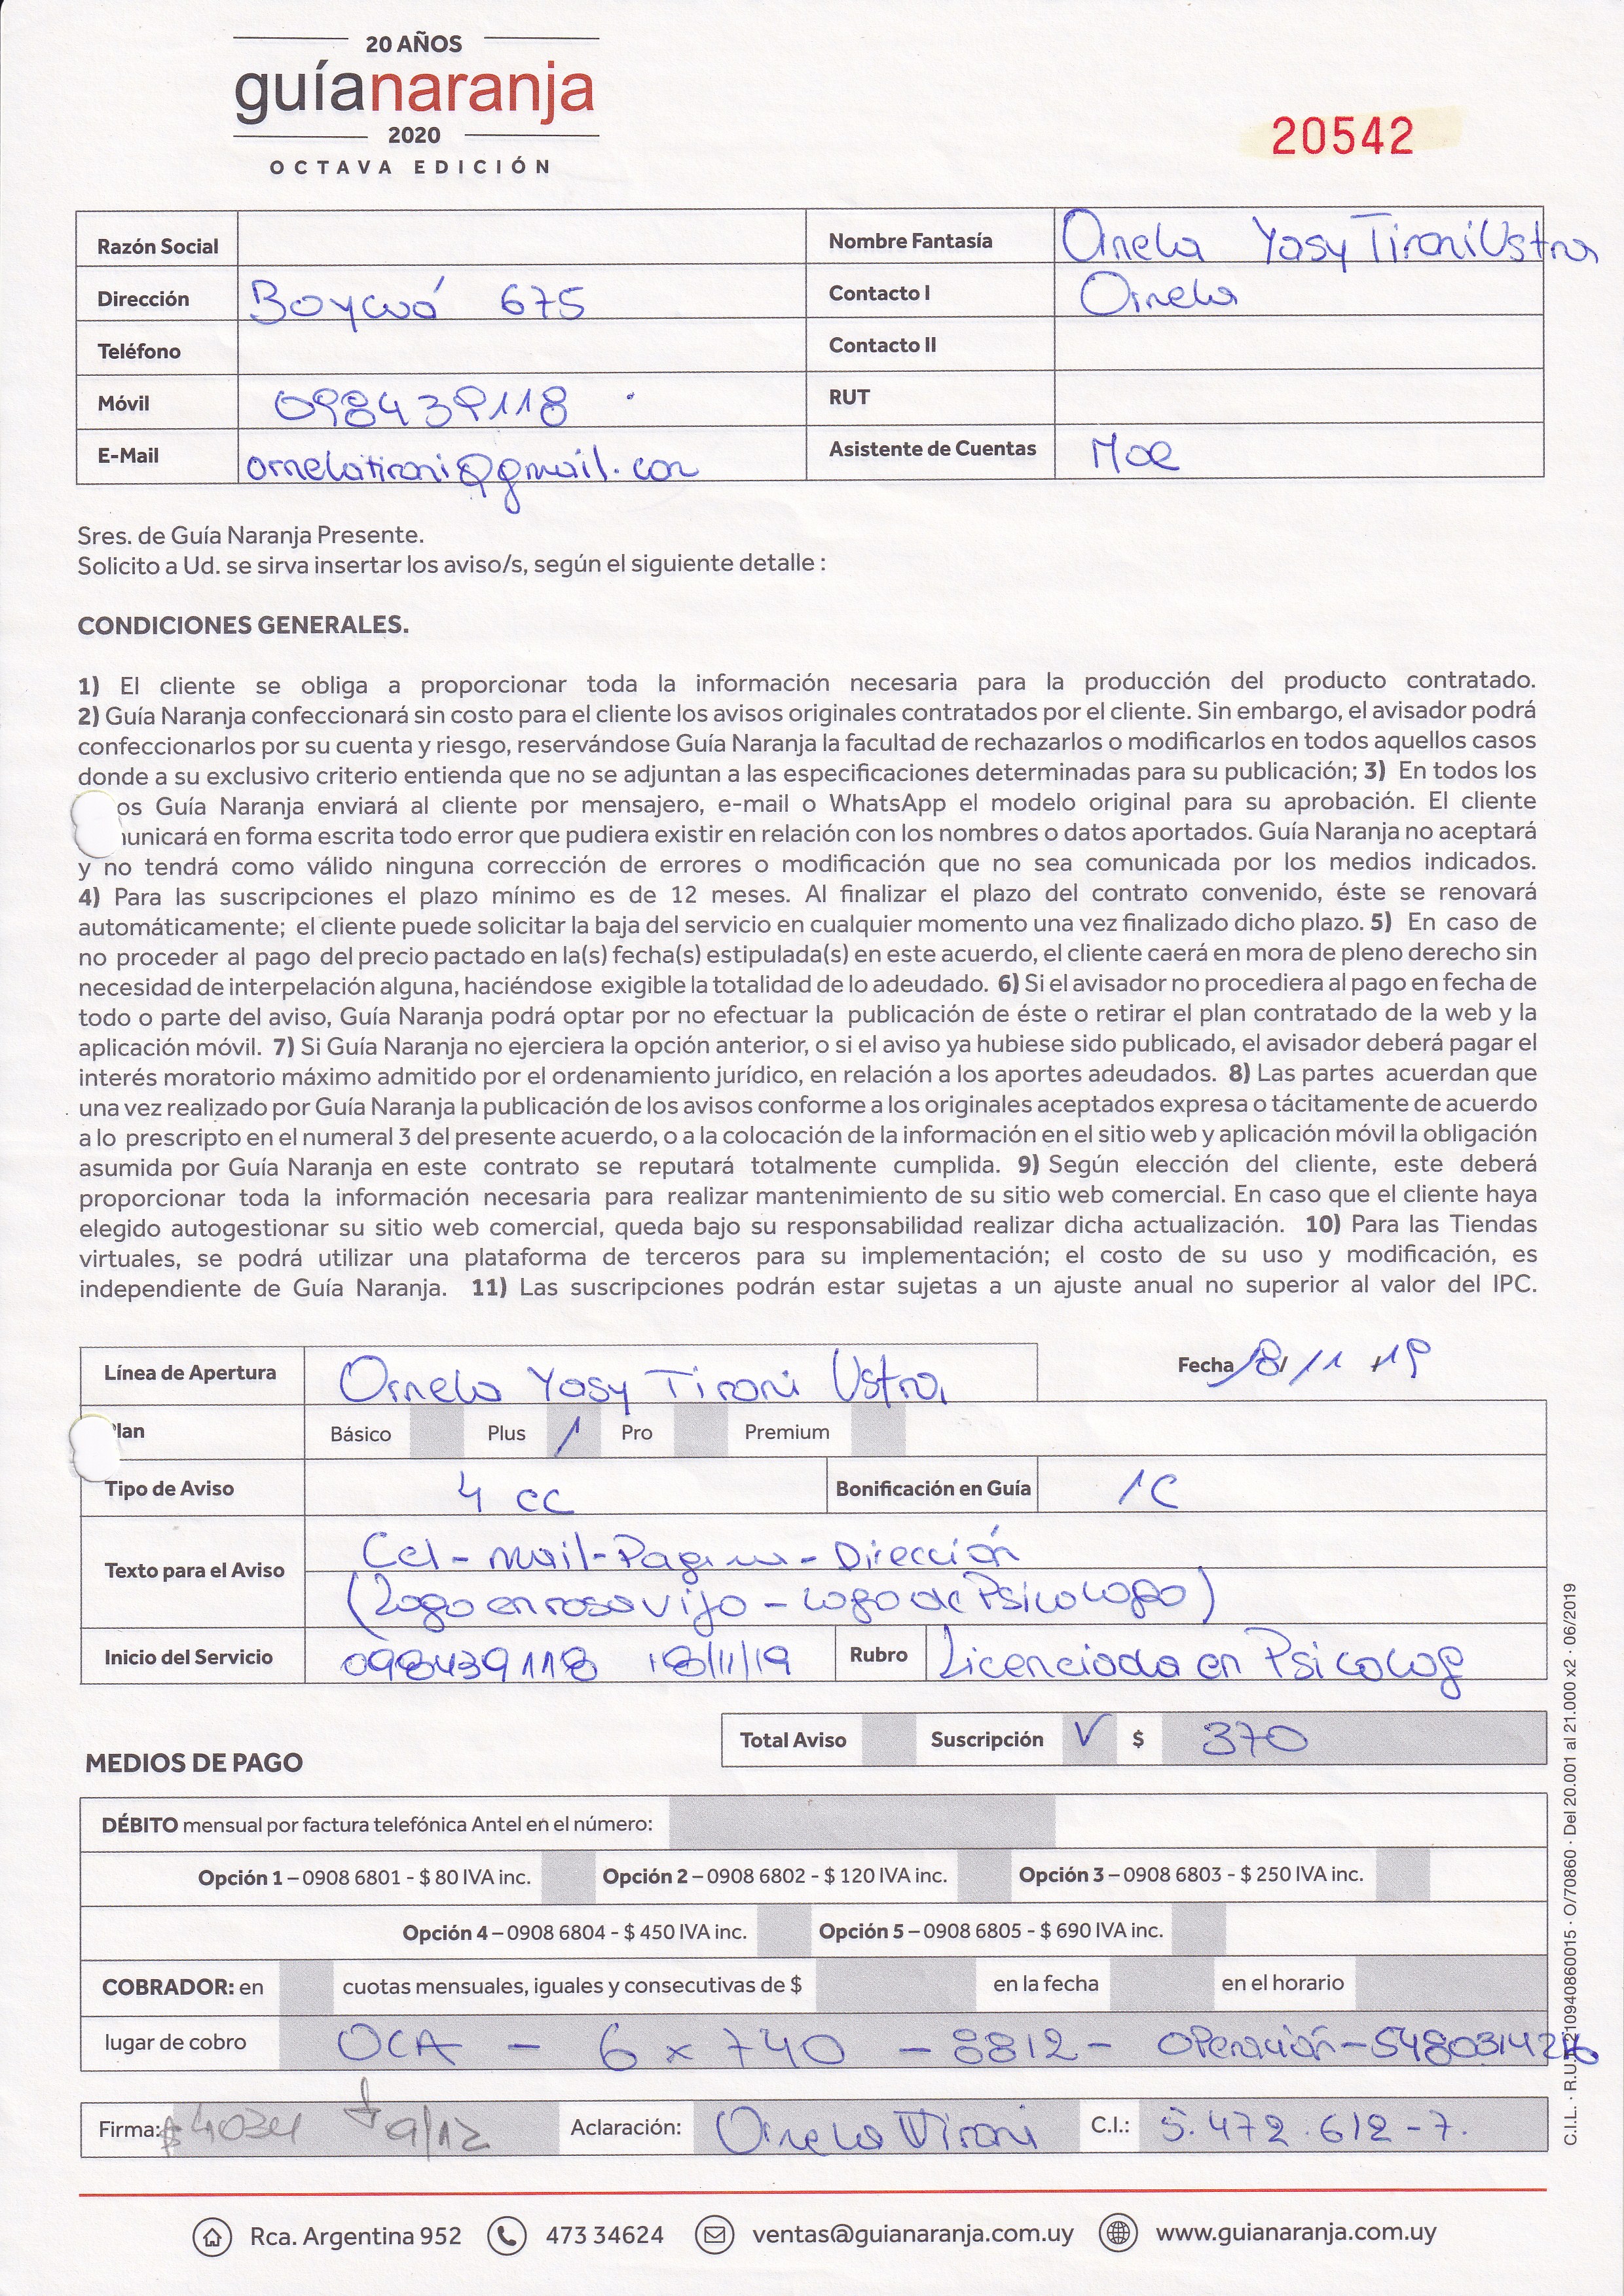 20 AÑOS
guíanaranja
2020
OCTAVA EDICIÓN
20542
Razón Social
Nombre Fantasía Ornela Yasy Tironi Ustra
Dirección Boycuá 675
Contacto I Ornela
Teléfono
Contacto II
Móvil 098439118
RUT
E-Mail ornelatironi@gmail.com
Asistente de Cuentas Moe
Sres. de Guía Naranja Presente.
Solicito a Ud. se sirva insertar los aviso/s, según el siguiente detalle :
CONDICIONES GENERALES.
1) El cliente se obliga a proporcionar toda la información necesaria para la producción del producto contratado.
2) Guía Naranja confeccionará sin costo para el cliente los avisos originales contratados por el cliente. Sin embargo, el avisador podrá
confeccionarlos por su cuenta y riesgo, reservándose Guía Naranja la facultad de rechazarlos o modificarlos en todos aquellos casos
donde a su exclusivo criterio entienda que no se adjuntan a las especificaciones determinadas para su publicación; 3) En todos los
os Guía Naranja enviará al cliente por mensajero, e-mail o WhatsApp el modelo original para su aprobación. El cliente
unicará en forma escrita todo error que pudiera existir en relación con los nombres o datos aportados. Guía Naranja no aceptará
y no tendrá como válido ninguna corrección de errores o modificación que no sea comunicada por los medios indicados.
4) Para las suscripciones el plazo mínimo es de 12 meses. Al finalizar el plazo del contrato convenido, éste se renovará
automáticamente; el cliente puede solicitar la baja del servicio en cualquier momento una vez finalizado dicho plazo. 5) En caso de
no proceder al pago del precio pactado en la(s) fecha(s) estipulada(s) en este acuerdo, el cliente caerá en mora de pleno derecho sin
necesidad de interpelación alguna, haciéndose exigible la totalidad de lo adeudado. 6) Si el avisador no procediera al pago en fecha de
todo o parte del aviso, Guía Naranja podrá optar por no efectuar la publicación de éste o retirar el plan contratado de la web y la
aplicación móvil. 7) Si Guía Naranja no ejerciera la opción anterior, o si el aviso ya hubiese sido publicado, el avisador deberá pagar el
interés moratorio máximo admitido por el ordenamiento jurídico, en relación a los aportes adeudados. 8) Las partes acuerdan que
una vez realizado por Guía Naranja la publicación de los avisos conforme a los originales aceptados expresa o tácitamente de acuerdo
a lo prescripto en el numeral 3 del presente acuerdo, o a la colocación de la información en el sitio web y aplicación móvil la obligación
asumida por Guía Naranja en este contrato se reputará totalmente cumplida. 9) Según elección del cliente, este deberá
proporcionar toda la información necesaria para realizar mantenimiento de su sitio web comercial. En caso que el cliente haya
elegido autogestionar su sitio web comercial, queda bajo su responsabilidad realizar dicha actualización. 10) Para las Tiendas
virtuales, se podrá utilizar una plataforma de terceros para su implementación; el costo de su uso y modificación, es
independiente de Guía Naranja. 11) Las suscripciones podrán estar sujetas a un ajuste anual no superior al valor del IPC.
Línea de Apertura Ornela Yasy Tironi Ustra
Fecha 18/11/19
lan Básico Plus / Pro Premium
Tipo de Aviso 4 cc Bonificación en Guía 1C
Texto para el Aviso
Cel - mail - Pagina - Dirección
(Logo en rosa vijo - logo de Psicologo)
Inicio del Servicio 098439118 18/11/19 Rubro Licenciada en Psicolog
Total Aviso Suscripción V $ 370
MEDIOS DE PAGO
DÉBITO mensual por factura telefónica Antel en el número:
Opción 1 – 0908 6801 - $ 80 IVA inc. Opción 2 – 0908 6802 - $ 120 IVA inc. Opción 3 – 0908 6803 - $ 250 IVA inc.
Opción 4 – 0908 6804 - $ 450 IVA inc. Opción 5 – 0908 6805 - $ 690 IVA inc.
COBRADOR: en cuotas mensuales, iguales y consecutivas de $ en la fecha en el horario
lugar de cobro OCA - 6 x 740 - 8812 - Operación - 548031421
Firma: $4034 9/12 Aclaración: Ornela Tironi C.I.: 5.472.612-7.
C.I.L. · R.U. 210940860015 · O/70860 · Del 20.001 al 21.000 x2 · 06/2019
Rca. Argentina 952 473 34624 ventas@guianaranja.com.uy www.guianaranja.com.uy